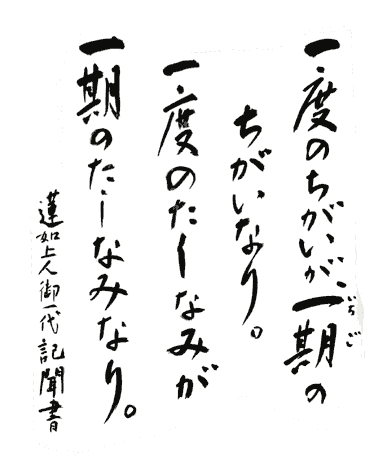 一度のちがいが、一期の
いちご
ちがいなり。
一度のたしなみが
一期のたしなみなり。
蓮如上人御一代記聞書